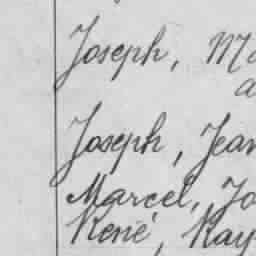 Joseph, M
a
Joseph, Jean
Marcel, Jo
René, Ray